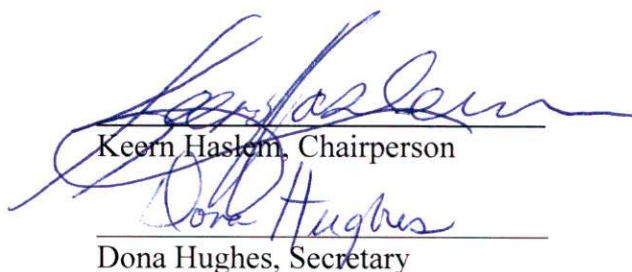 Keern Haslem
Keern Haslem, Chairperson
Dona Hughes
Dona Hughes, Secretary